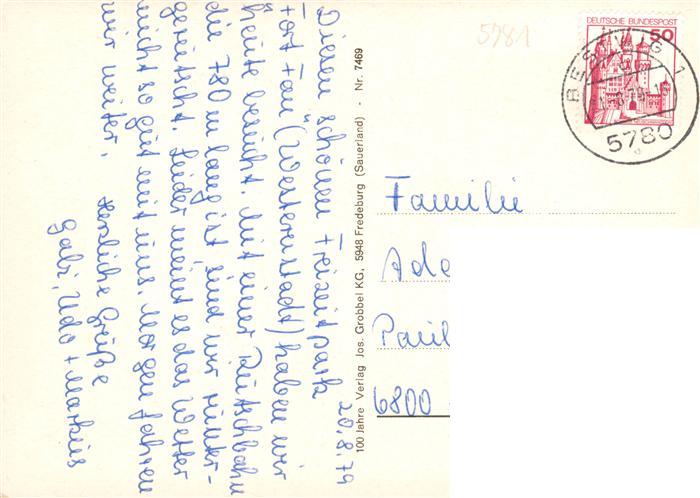 20.8.79
Diesen schönen Freizeitpark
Fort Fun (Westernstadt) haben wir
heute besucht. Mit einer Rutschbahn
die 780 m lang ist, sind wir runter-
gerutscht. Leider meint es das Wetter
nicht so gut mit uns. Morgen fahren
wir weiter.
Herzliche Grüße
Gabi, Udo + Markus
100 Jahre Verlag Jos. Grobbel KG, 5948 Fredeburg (Sauerland) - Nr. 7469
5781
DEUTSCHE BUNDESPOST
50
BESTWIG 1
5780
Familie
Ade
Paul
6800